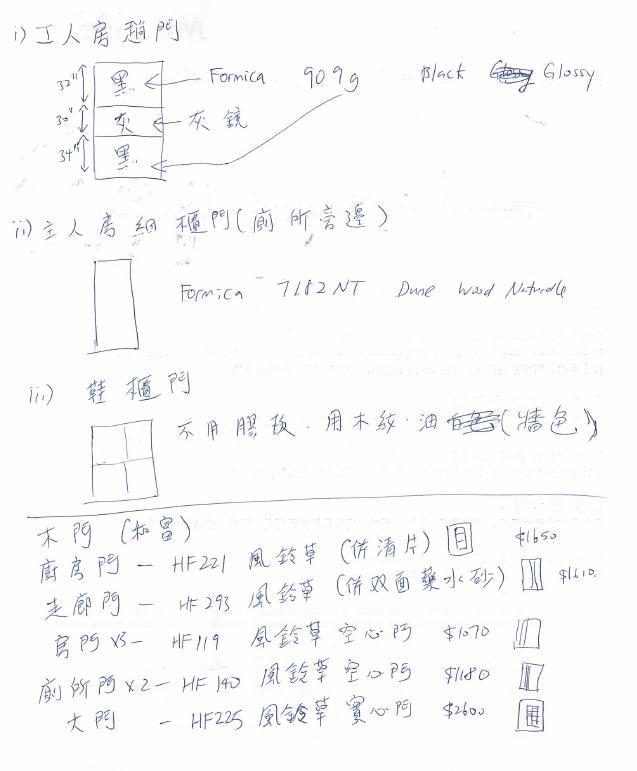 i) 工人房趟門
32" 黑 Formica 909g Black Glossy
30" 灰 灰鏡
34" 黑
ii) 主人房細櫃門(廁所旁邊)
Formica 7182NT Dune Wood Naturale
iii) 鞋櫃門
不用膠板.用木紋.油(墻色)
木門 (和富)
廚房門 - HF221 風鈴草 (併清片) $1650
走廊門 - HF293 風鈴草 (併双面藥水砂) $1610.
房門 x3 - HF119 風鈴草 空心門 $1070
廁所門 x2 - HF140 風鈴草 空心門 $1180
大門 - HF225 風鈴草 實心門 $2600